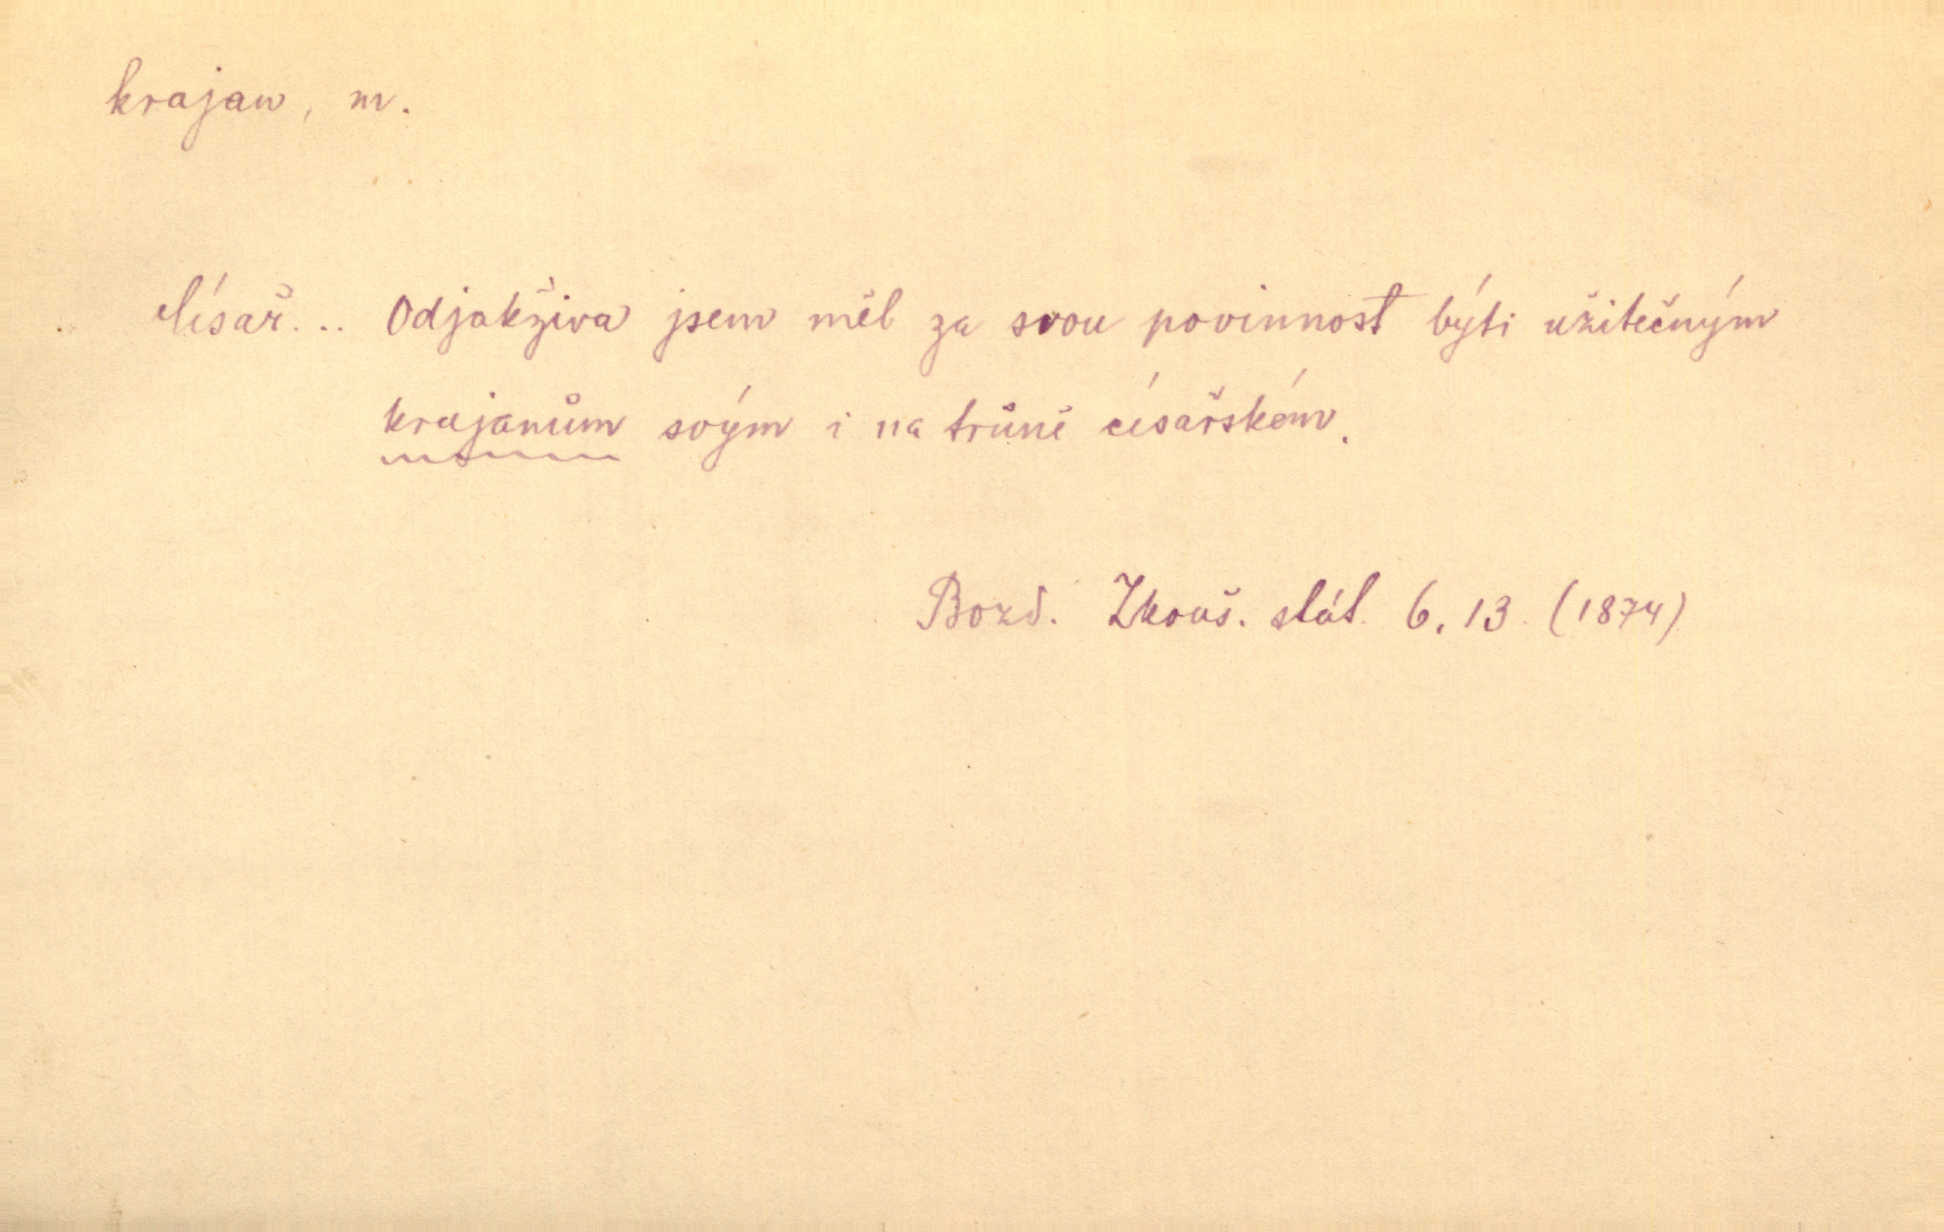 krajan, m.
Císař... Odjakživa jsem měl za svou povinnost býti užitečným
krajanům svým i na trůně císařském.
Bozd. Zkouš. stát. 6, 13. (1874)